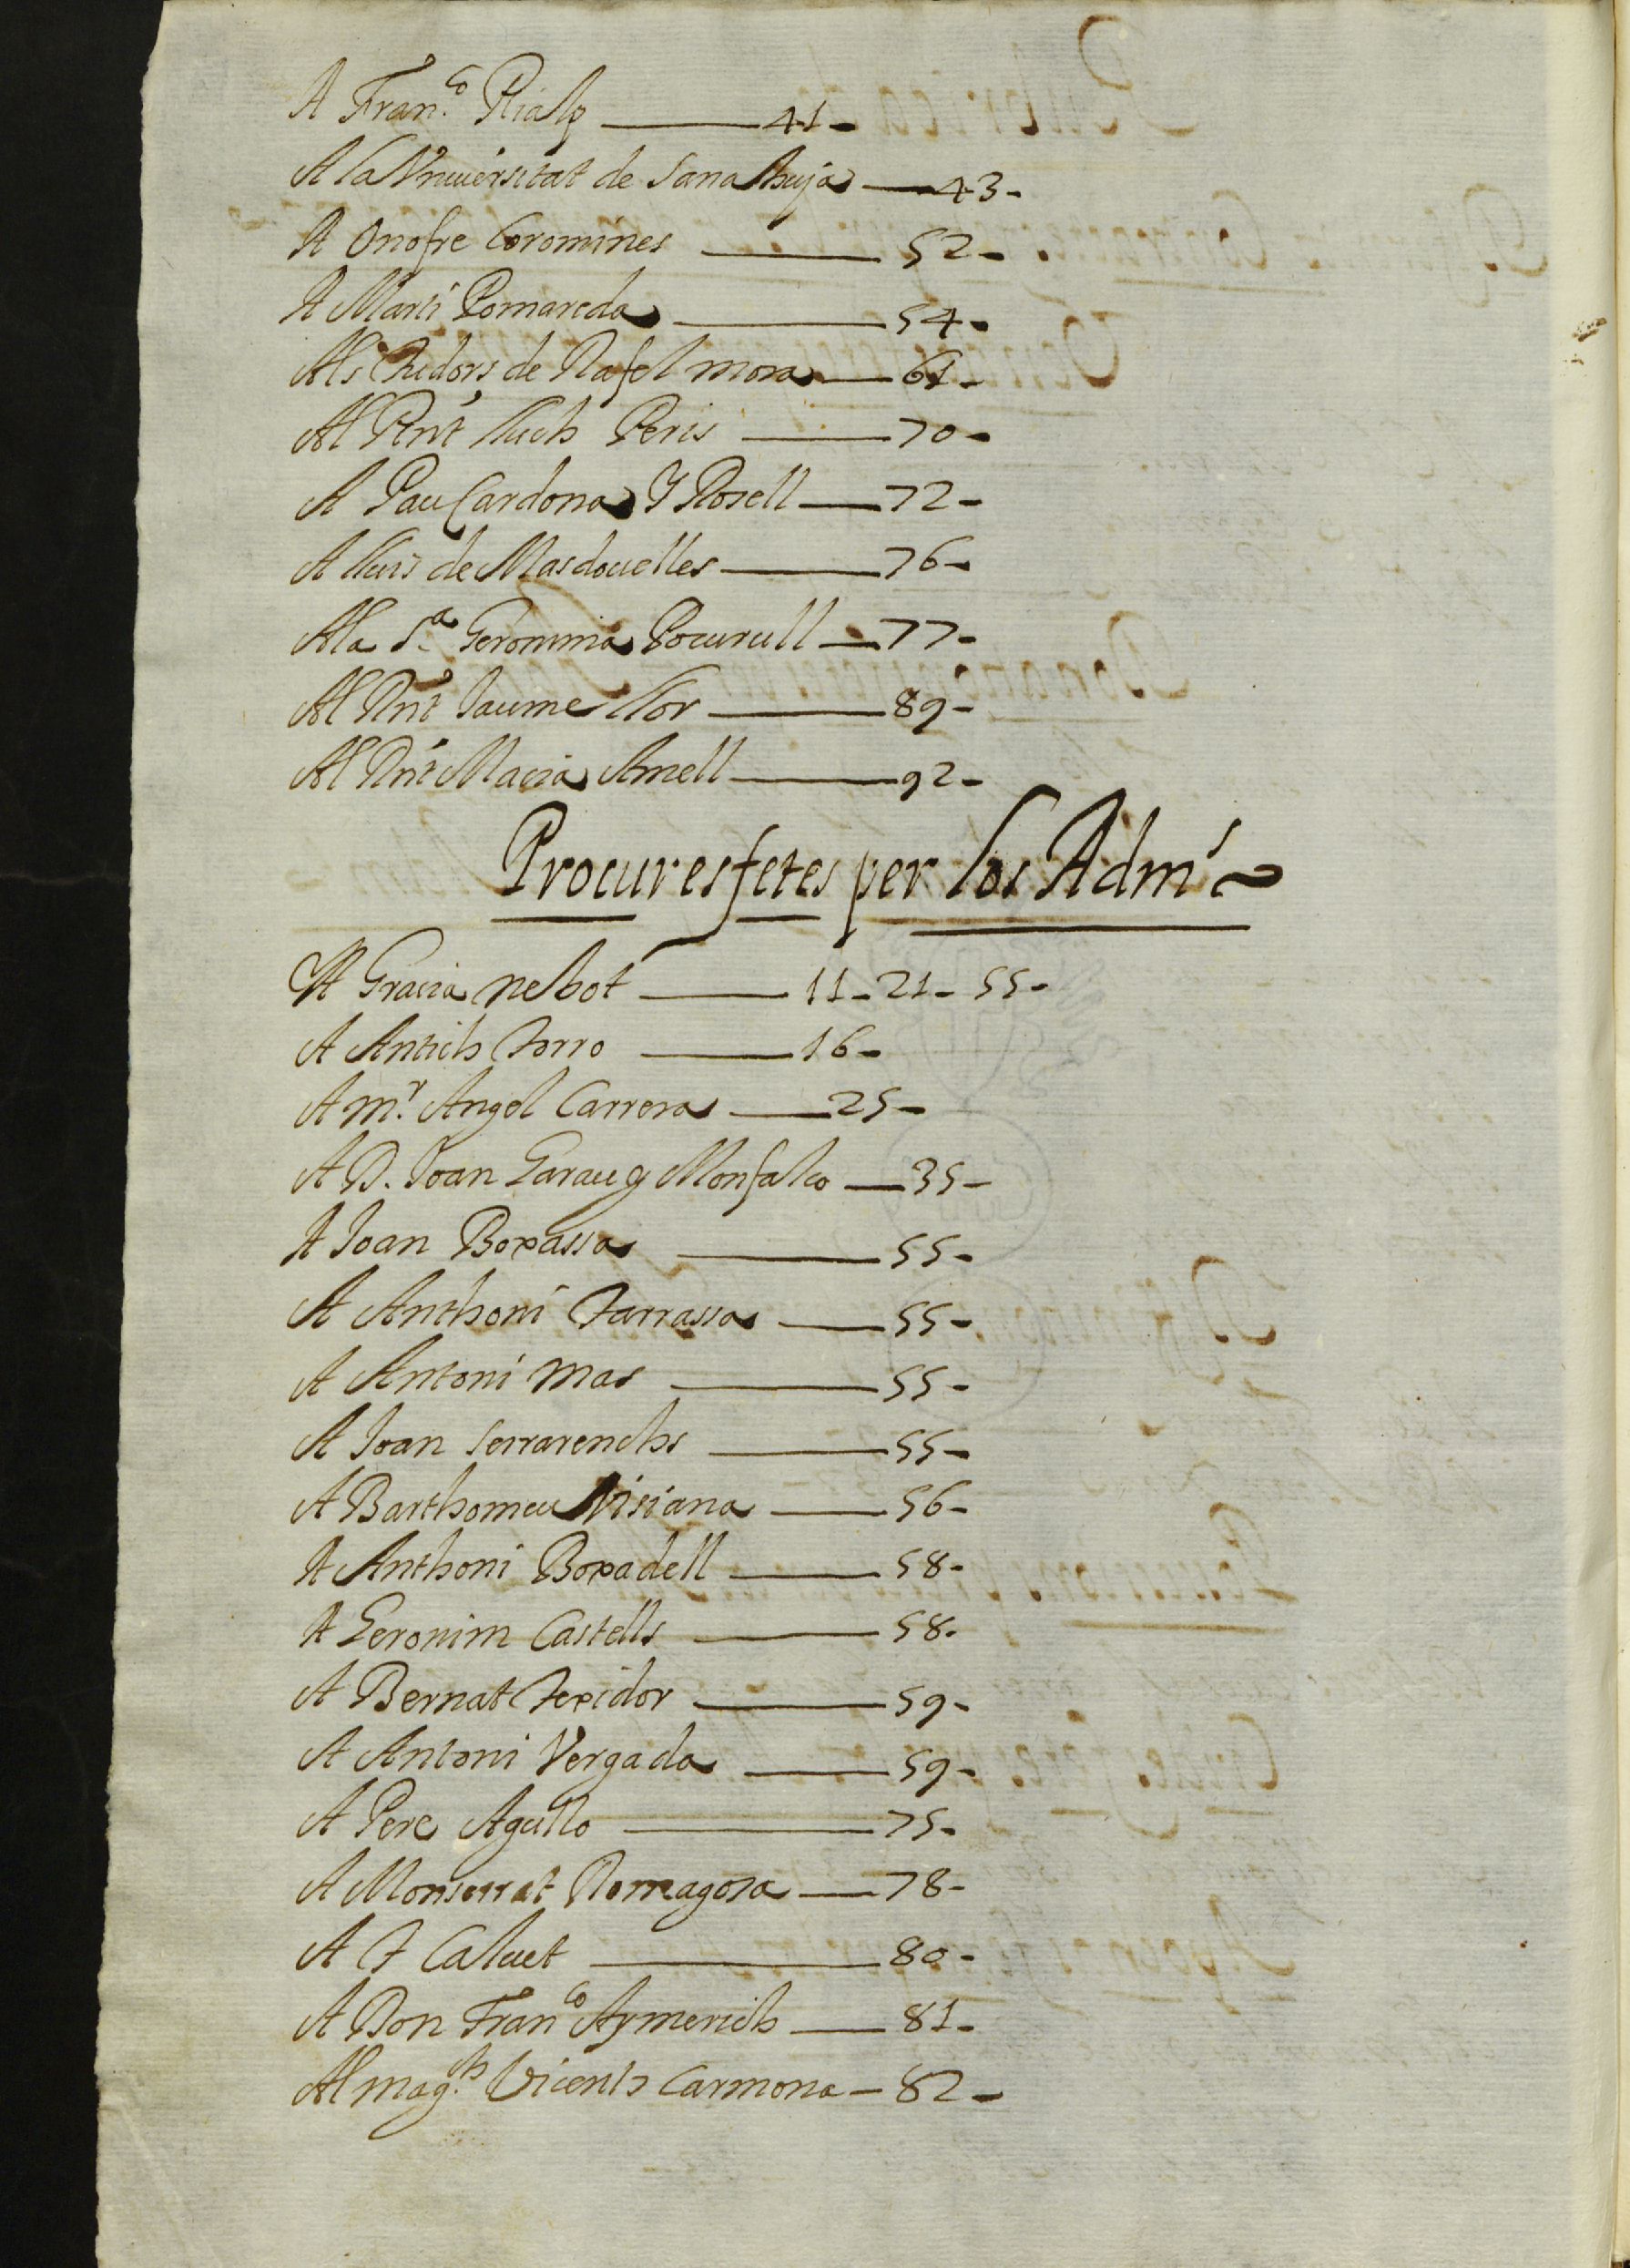 A Fran.co Rialp — 41-
A la Vniuersitat de sanahuja — 43-
A Onofre Coromines — 52-
A Marti Pomareda — 54-
Als Tudors de Rafel mora — 61-
Al Rnt lluch Peris — 70-
A Pau Cardona Y Rosell — 72-
A lluis de Masdouelles — 76-
A la S.a Geronima Pocurull — 77-
Al Rnt Jaume llor — 89-
Al Rnt Macia Amell — 92-
Procures fetes per los Adm.s
A Gracia nebot — 11-21-55-
A Antich Torro — 16-
A m.r Angel Carrera — 25-
A D. Joan Garau y Monfalco — 35-
A Joan Boxassa — 55-
A Anthoni Tarrassa — 55-
A Antoni mas — 55-
A Joan serrarenchs — 55-
A Barthomeu Visiana — 56-
A Anthoni Boxadell — 58-
A Geronim Castells — 58-
A Bernat Texidor — 59-
A Antoni Vergada — 59-
A Pere Agullo — 75-
A Monserrat Romagosa — 78-
A T Caluet — 80-
A Don Fran.co Aymerich — 81-
Al mag.ch Vicents Carmona — 82-